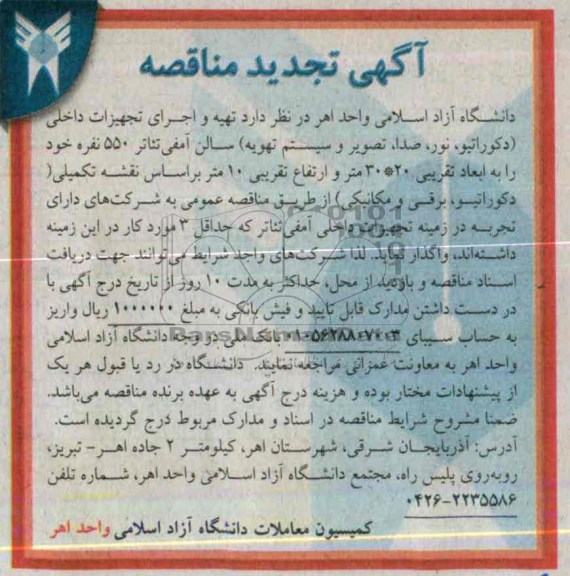 آگهی تجدید مناقصه
دانشگاه آزاد اسلامی واحد اهر در نظر دارد تهیه و اجرای تجهیزات داخلی
(دکوراتیو، نور، صدا، تصویر و سیستم تهویه) سالن آمفی‌تئاتر ۵۵۰ نفره خود
را به ابعاد تقریبی ۲۰*۳۰ متر و ارتفاع تقریبی ۱۰ متر براساس نقشه تکمیلی(
دکوراتیو، برقی و مکانیکی) از طریق مناقصه عمومی به شرکت‌های دارای
تجربه در زمینه تجهیزات داخلی آمفی‌تئاتر که حداقل ۳ مورد کار در این زمینه
داشته‌اند، واگذار نماید. لذا شرکت‌های واجد شرایط می‌توانند جهت دریافت
اسناد مناقصه و بازدید از محل، حداکثر به مدت ۱۰ روز از تاریخ درج آگهی با
در دست داشتن مدارک قابل تایید و فیش بانکی به مبلغ ۱۰۰۰۰۰۰ ریال واریز
به حساب سیبای ۰۱۰۵۶۲۸۸۰۷۰۰۳ بانک ملی در وجه دانشگاه آزاد اسلامی
واحد اهر به معاونت عمرانی مراجعه نمایند. دانشگاه در رد یا قبول هر یک
از پیشنهادات مختار بوده و هزینه درج آگهی به عهده برنده مناقصه می‌باشد.
ضمنا مشروح شرایط مناقصه در اسناد و مدارک مربوط درج گردیده است.
آدرس: آذربایجان شرقی، شهرستان اهر، کیلومتر ۲ جاده اهر- تبریز،
روبه‌روی پلیس راه، مجتمع دانشگاه آزاد اسلامی واحد اهر، شماره تلفن
۰۴۲۶-۲۲۳۵۵۸۶
کمیسیون معاملات دانشگاه آزاد اسلامی واحد اهر